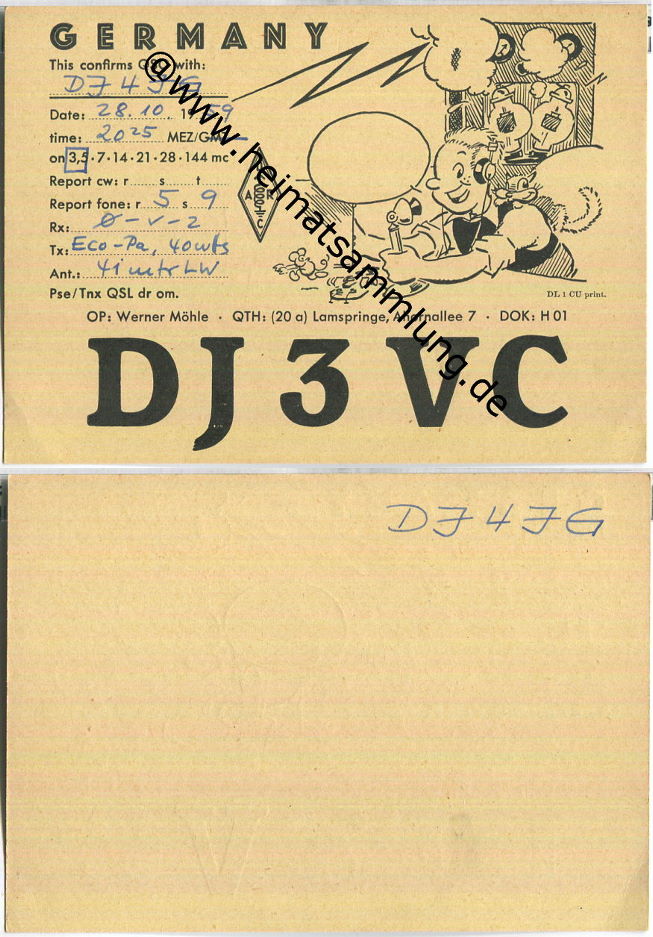 GERMANY
This confirms QSO with:
DJ4JG
Date: 28.10. 1959
time: 20 25 MEZ/GMT
on 3,5 · 7 · 14 · 21 · 28 · 144 mc
Report cw: r s t
Report fone: r 5 s 9
Rx: 0-v-2
Tx: Eco-Pa, 40wts
Ant.: 41 mtr LW
Pse/Tnx QSL dr om.
DARC
DL 1 CU print.
OP: Werner Möhle · QTH: (20 a) Lamspringe, Ahornallee 7 · DOK: H 01
DJ3VC
@www.heimatsammlung.de
DJ4JG